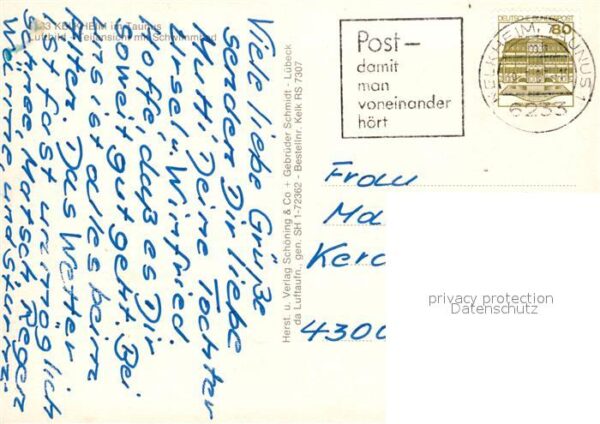 33 KELKHEIM im Taunus
Luftbild - Teilansicht mit Schwimmbad
Viele liebe Grüße
sendet Dir liebe
Mutti, Deine Tochter
Ursel u. Winfried.
Hoffe, daß es Dir
soweit gut geht. Bei
uns ist alles beim
Alten. Das Wetter
ist fast unmöglich
Schnee, Matsch, Regen
Wärme, und Sturm.
Herst. u. Verlag Schöning & Co + Gebrüder Schmidt - Lübeck
da Luftaufn., gen. SH 1-72362 - Bestellnr. Kelk RS 7307
Post-
damit
man
voneinander
hört
DEUTSCHE BUNDESPOST
80
KELKHEIM, TAUNUS 1
6233
Frau
Ma
Kerc
4300
privacy protection
Datenschutz